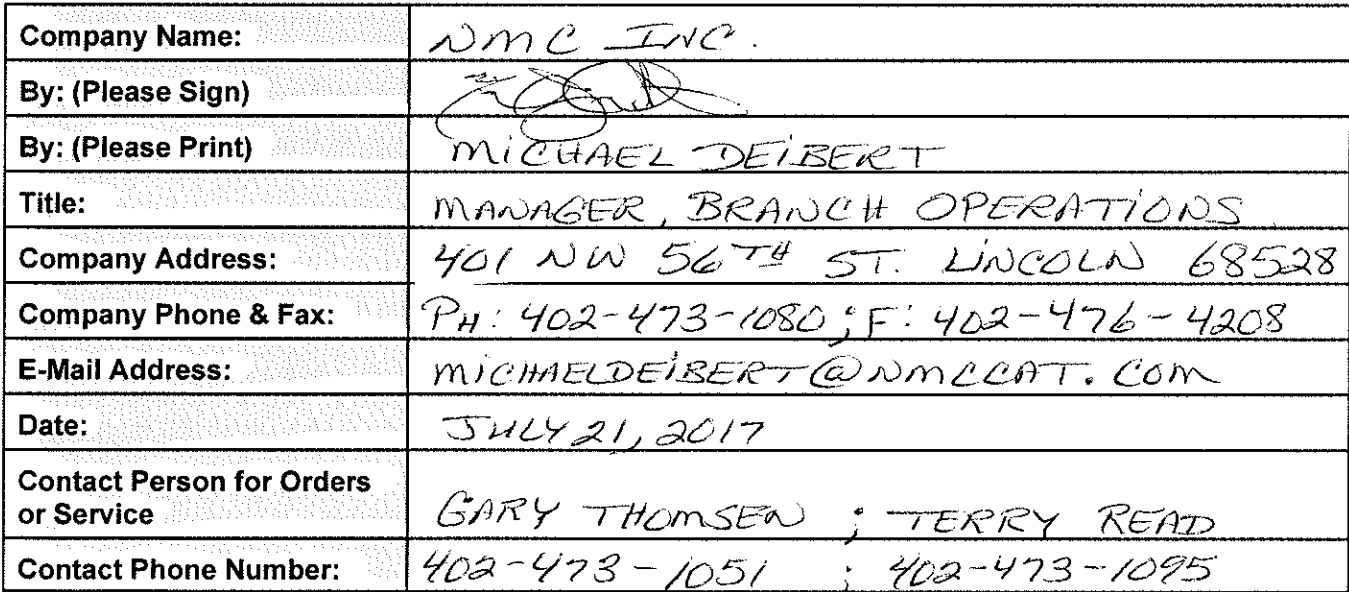 Company Name: NMC INC.
By: (Please Sign)
By: (Please Print) MiCHAEL DEiBERT
Title: MANAGER, BRANCH OPERATIONS
Company Address: 401 NW 56TH ST. LiNCOLN 68528
Company Phone & Fax: PH: 402-473-1080 ; F: 402-476-4208
E-Mail Address: MiCHAELDEiBERT@NMCCAT.COM
Date: JULY 21, 2017
Contact Person for Orders
or Service GARY THOMSEN ; TERRY READ
Contact Phone Number: 402-473-1051 ; 402-473-1095